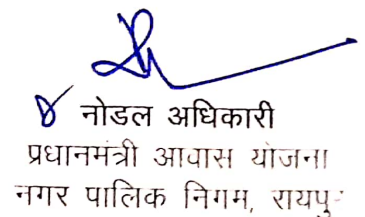 नोडल अधिकारी
प्रधानमंत्री आवास योजना
नगर पालिक निगम, रायपु